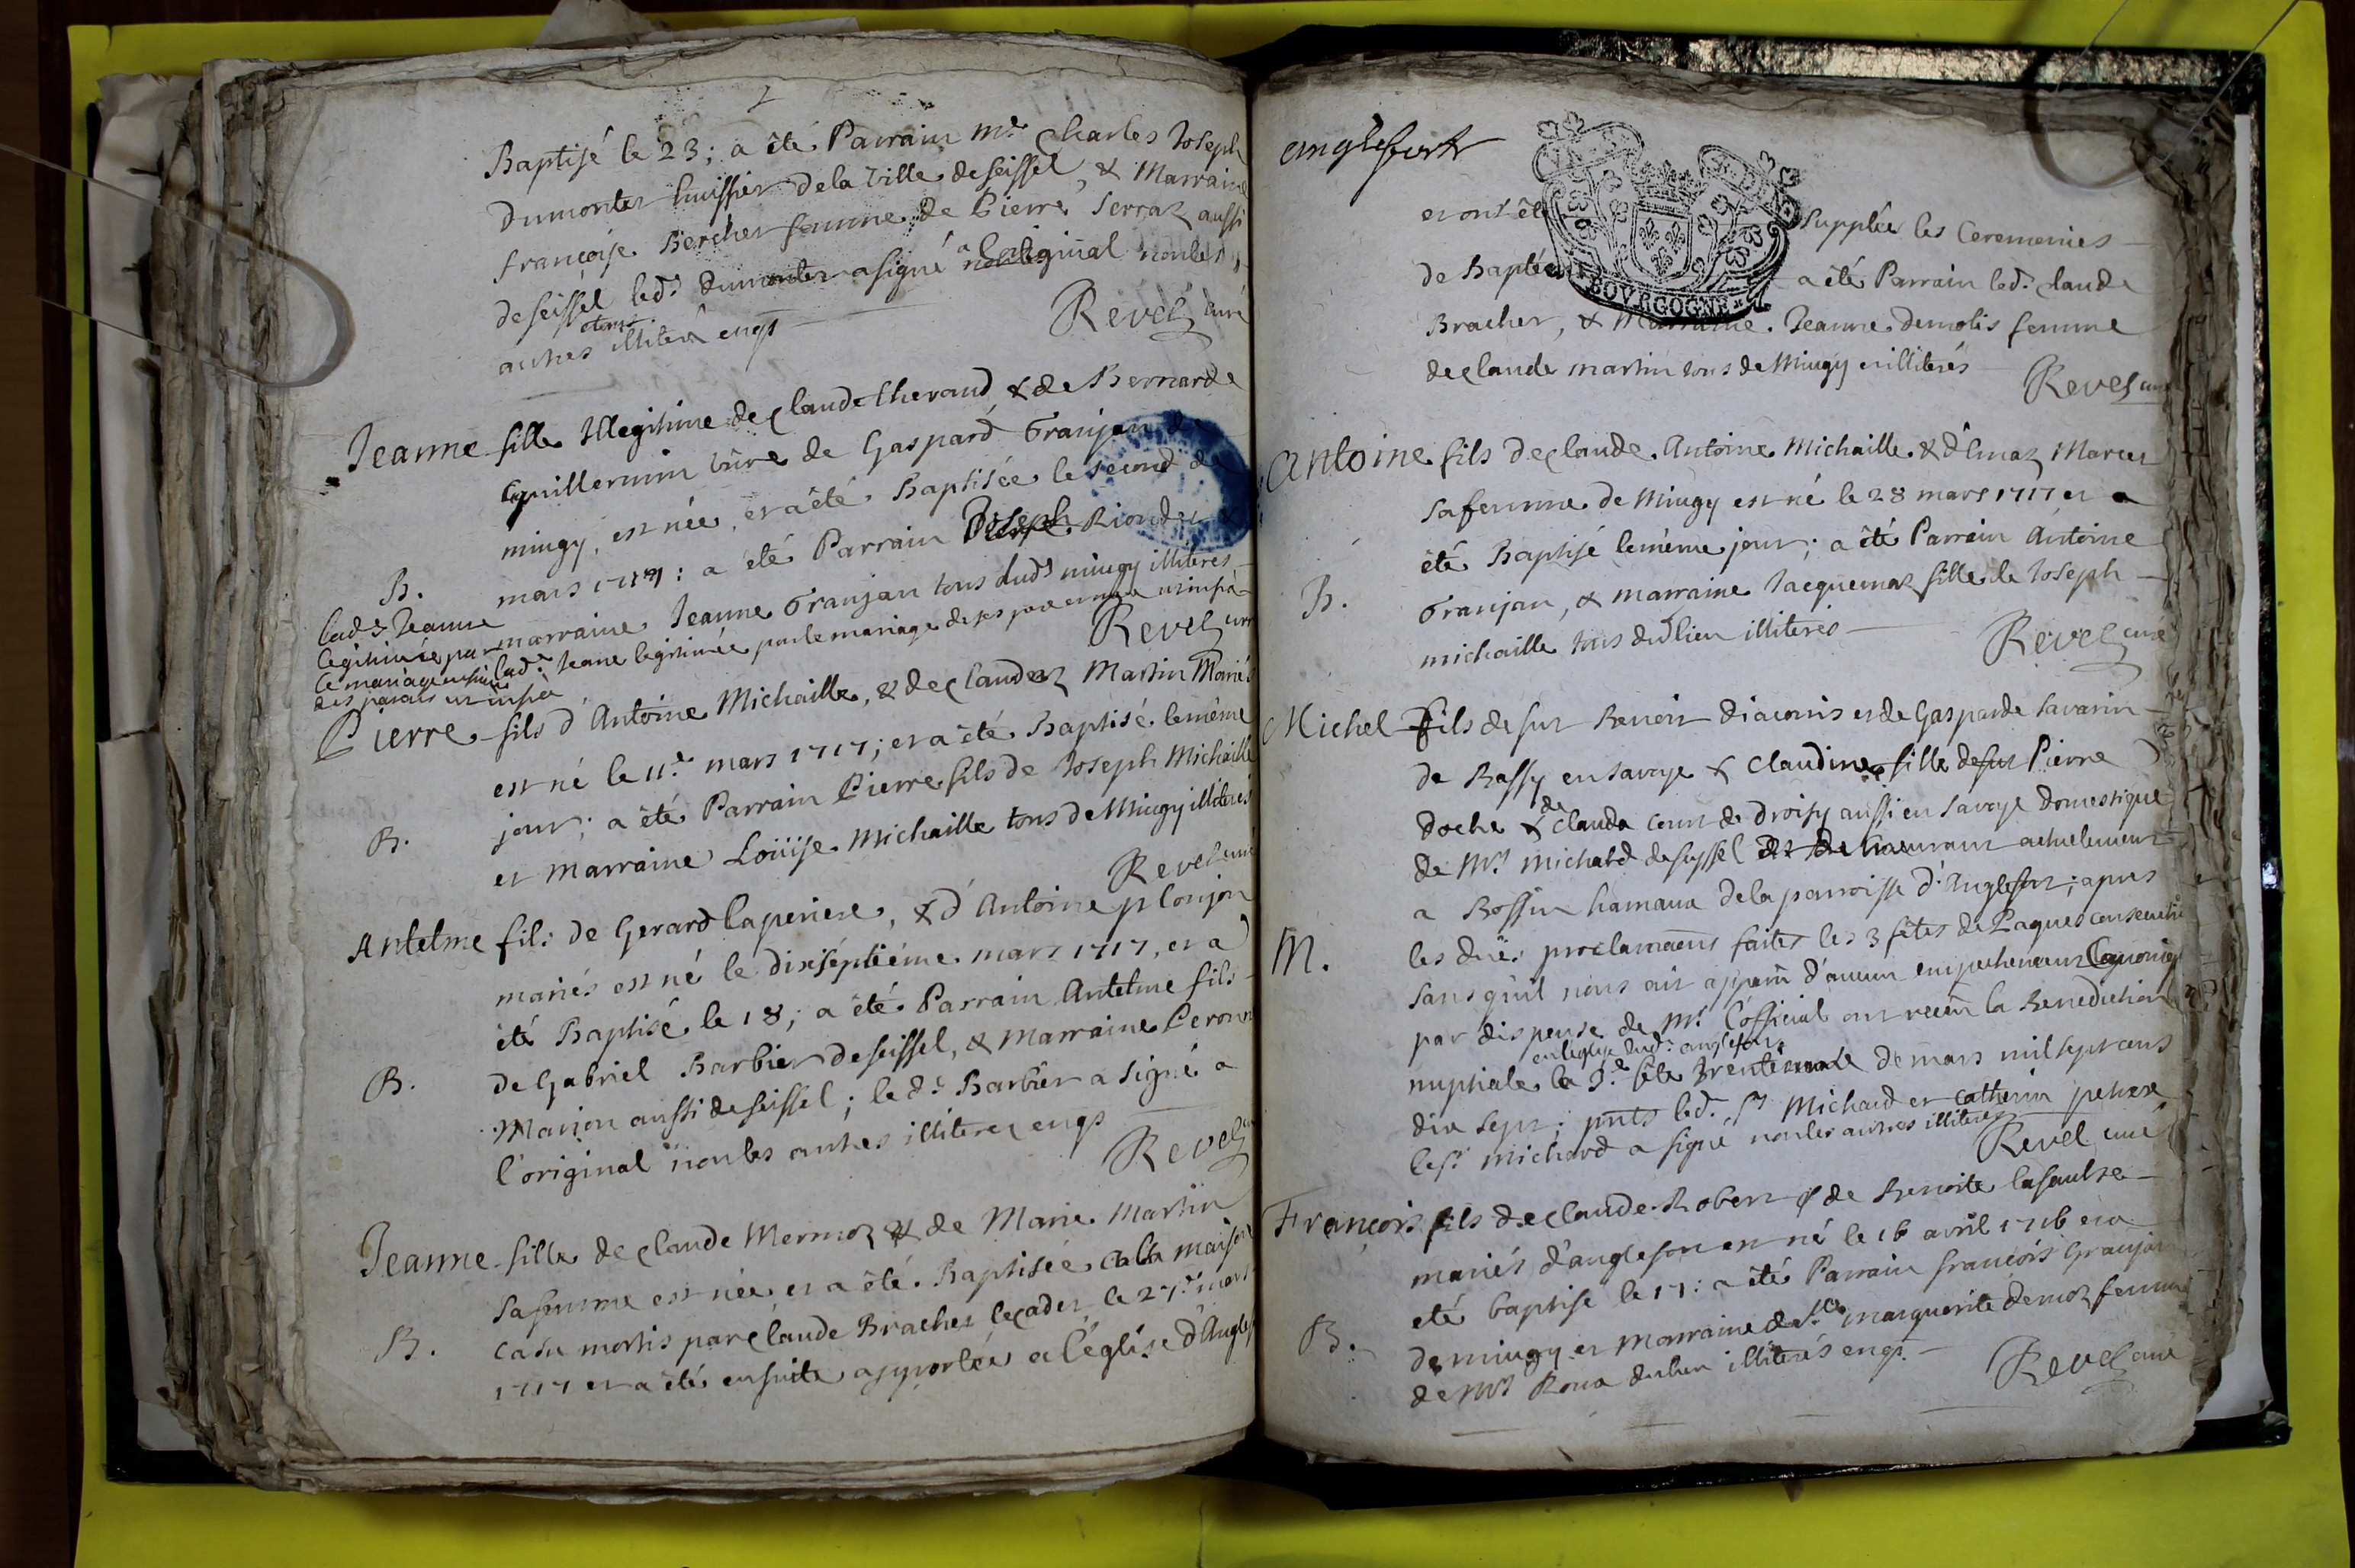 Baptisé le 23; a été Parrain Mre Charles Joseph
Dumonter huissier de la Ville de seissel, & Marraine
françoise Bercher femme de Pierre Serraz aussi
de seissel led. Dumonter a signé a l'original non les
autres illiterés enqs
Revel curé
Jeanne fille Illegitime de Claude Cherand & de Bernarde
Guillermin vûve de Gaspard Granjan de
mingy, est née, et a été Baptisée le second de
B. mars 1717: a été Parrain Joseph Riondet
marraine Jeanne Granjan tous dudt mingy illiteres
Revel curé
lade Jeane legitimée par le mariage de ses pere et mere
lade Jeanne
legitimée par
le mariage
des parais
Pierre fils d'Antoine Michaille, & de Claudaz Martin Mariés
est né le 11e mars 1717; et a été Baptisé le même
B. jour; a été Parrain Pierre fils de Joseph Michaille
et Marraine Loüise Michaille tous de Mingy illiterés
Revel curé
Antelme fils de Gerard laperiere, & d'Antoine plonjon
mariés est né le dixséptiéme mars 1717, et a
été Baptisé le 18; a été Parrain Antelme fils
B. de Gabriel Barbier de seissel, & Marraine
Marion aussi de seissel; led. Barbier a signé a
l'original non les autres illiterez enqs
Revel
Jeanne fille de Claude Mermoz & de Marie Martin
sa femme est née et a été Baptisée a la maison
B. casu mortis par Claude Bracher le cadet le 27e mars
1717 et a été ensuite apportée a l'église d'Anglef
anglefort
et ont été supplée les Ceremonies
de Baptéme a été Parrain led. Claude
Bracher, & Marraine Jeanne demolis femme
de Claude martin tous de Mingy illiterés
Revel curé
Antoine fils de Claude Antoine Michaille & d'Emaz Marcet
sa femme de Mingy est né le 28 mars 1717 et a
été Baptisé le même jour; a été Parrain Antoine
B. Granjan, & marraine Jacquemaz fille de Joseph
michaille tous dud lieu illiterés
Revel curé
Michel fils de fut Benoit diaconis et de Gasparde Savarin
de Bassy en savoye & Claudine fille de fut Pierre
doche & de Clauda court de droisy aussi en savoye domestique
de Mr Michard de seyssel demeurant actuelement
a Boffin hamaux de la parroisse d'Anglefort; apres
les dües proclamaons faites les 3 fêtes de Paques consecutives
M. sans qu'il nous ait apparu d'aucun empechement Canonique
par dispense de Mr l'official ont receu la Benediction
en l'eglise dud. anglefort
nuptiale la 3e fête Trentieme de mars mil sept cens
dix sept; pnts led. Sr Michard et Catherin
le sr michard a signé non les autres illiterez
Revel curé
François fils de Claude Robert & de Benoite lasaulse
mariés d'anglefort est né le 16 avril 1716 et a
eté baptisé le 17: a été Parrain françois Granjan
B. de mingy et marraine dlle marguerite demoz femme
de Mr Roux dud lieu illiterés enqs
Revel curé
BOVRGOGNE